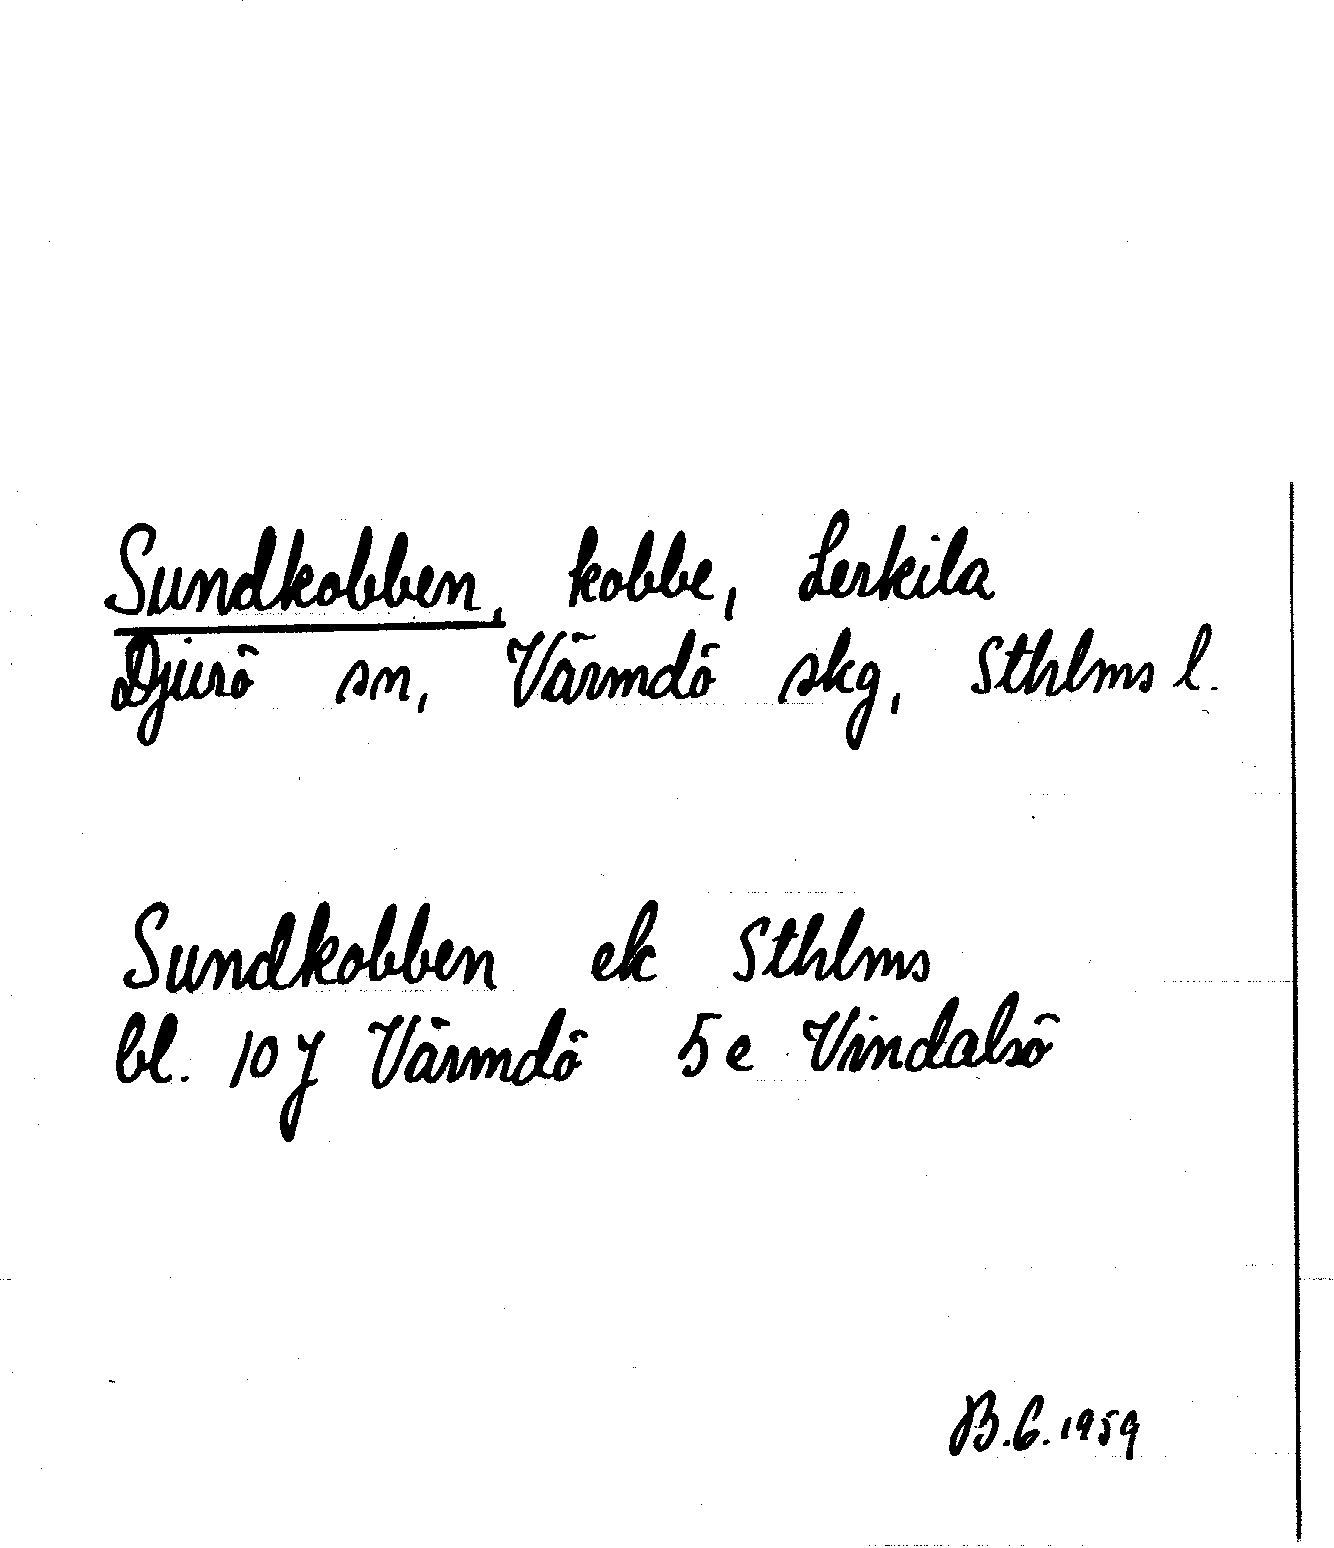 Sundkobben, kobbe, Lerkila
Djurö sn, Värmdö skg, Sthlms l.
Sundkobben ek Sthlms
bl. 10 J Värmdö 5 e Vindalsö
B.G. 1959